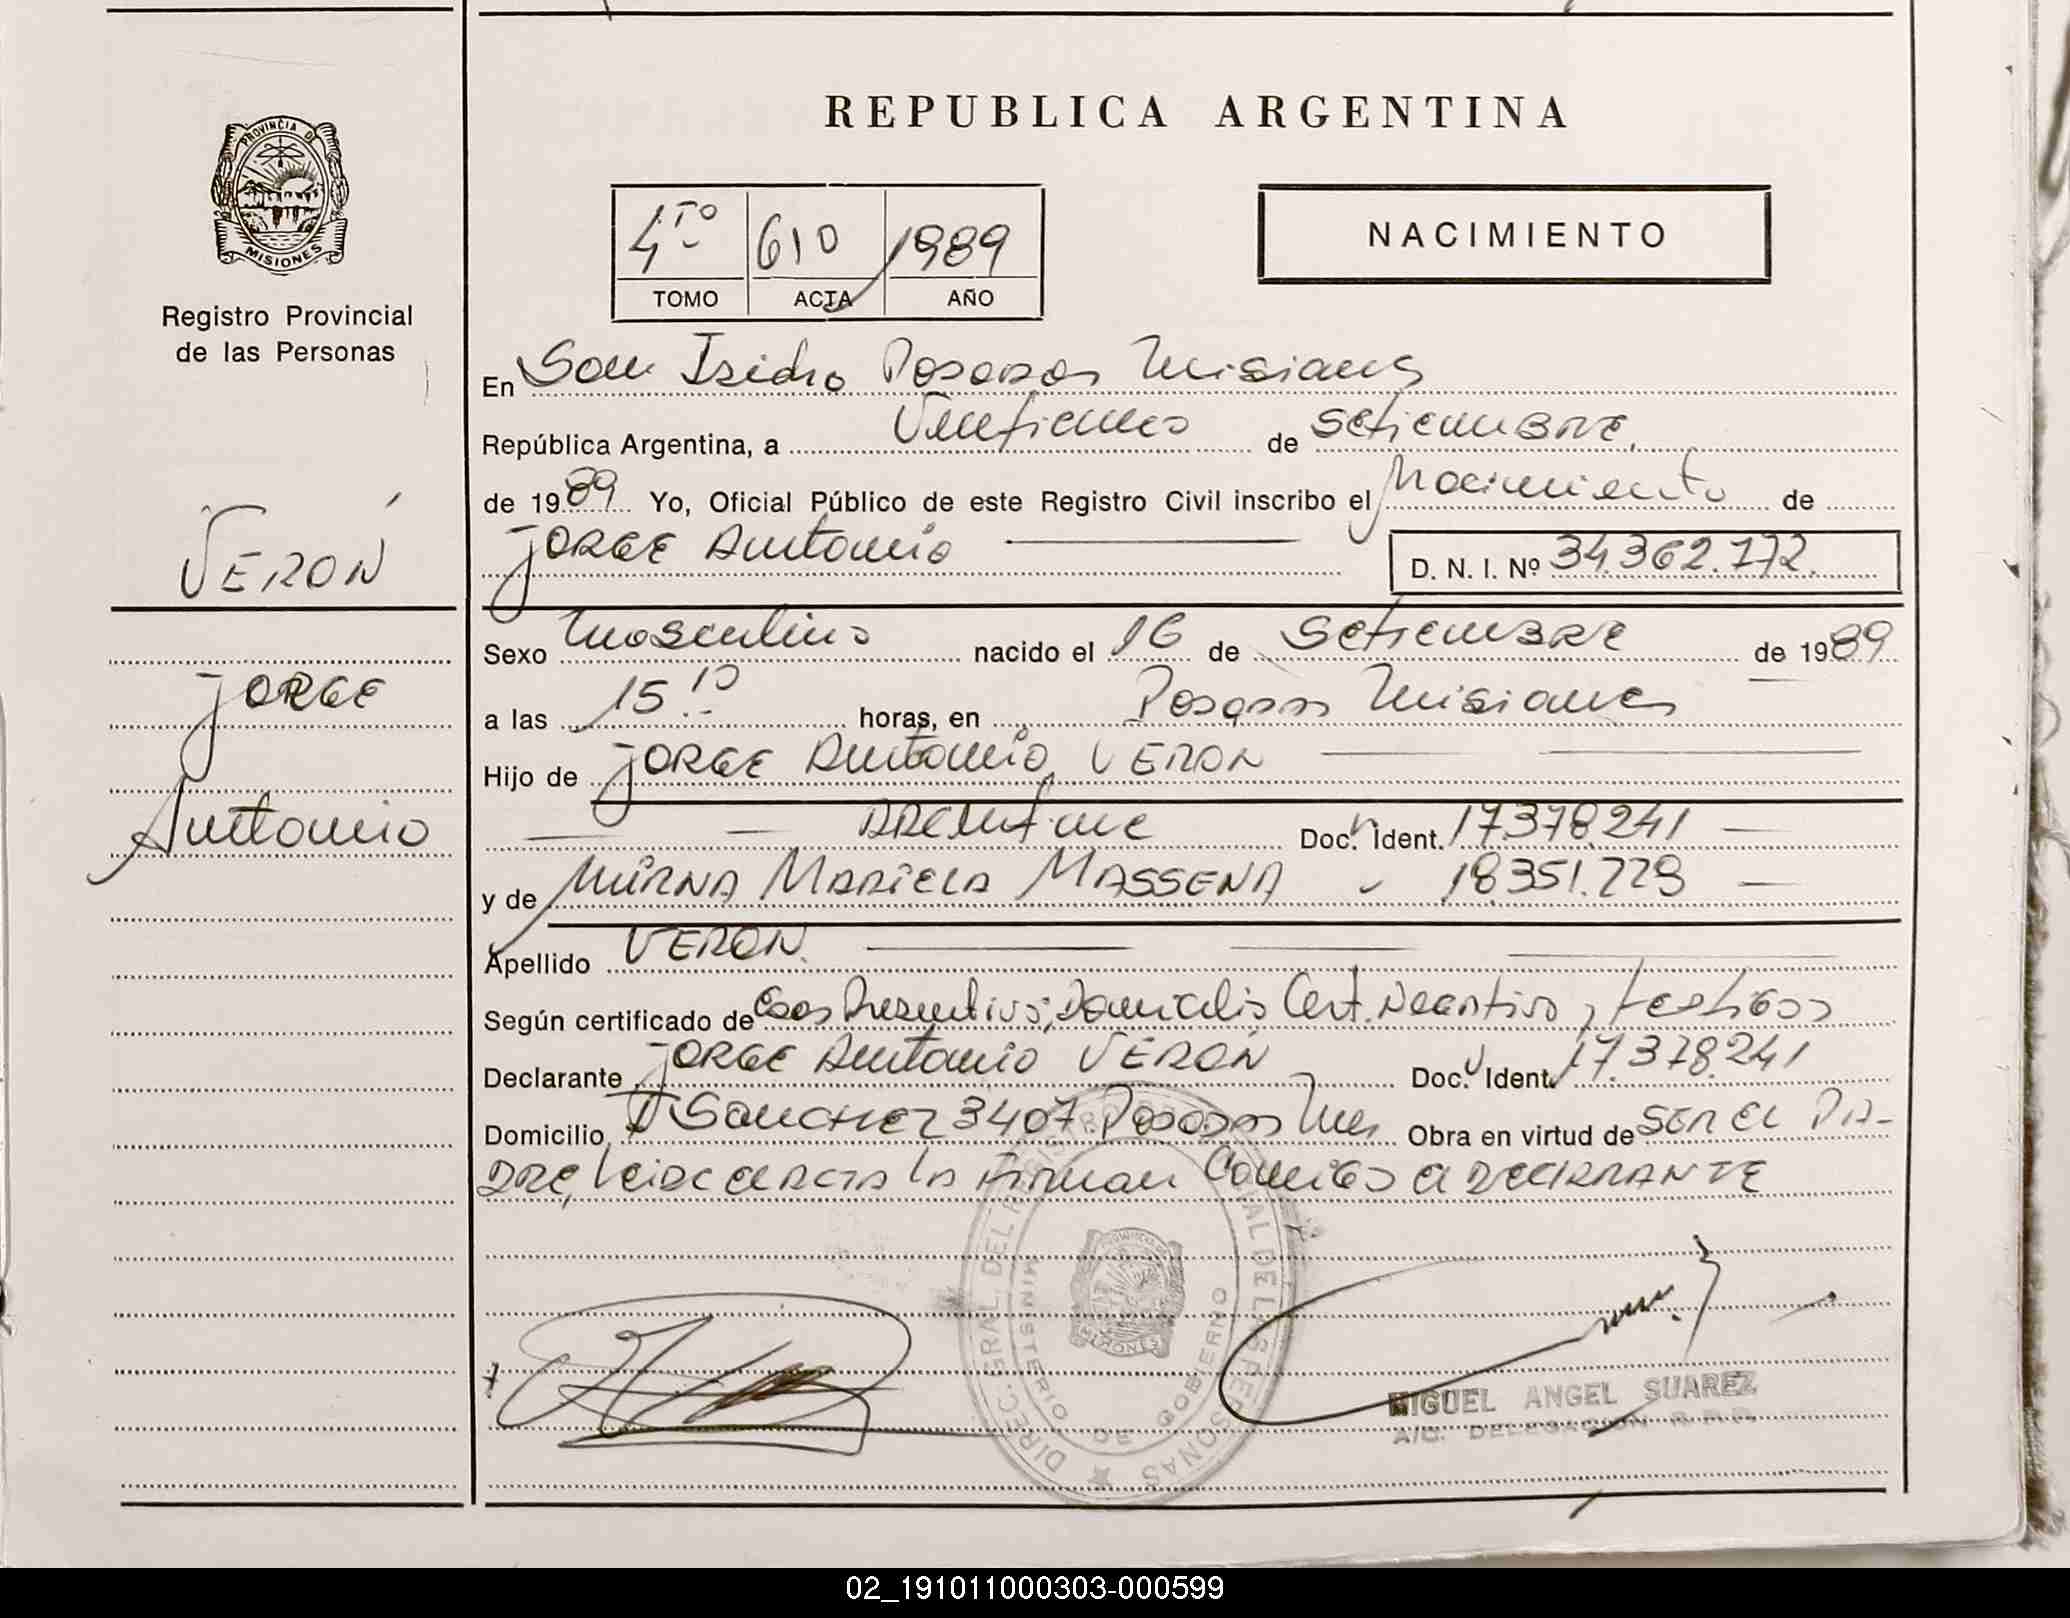 REPUBLICA ARGENTINA
PROVINCIA DE
MISIONES
Registro Provincial
de las Personas
4to 610 1989
TOMO ACTA AÑO
NACIMIENTO
En San Isidro Posadas Misiones
República Argentina, a de setiembre
de 1989 Yo, Oficial Público de este Registro Civil inscribo el Nacimiento de
JORGE Antonio D. N. I. Nº 34.362.172
VERÓN
Sexo masculino nacido el 16 de setiembre de 1989
JORGE
a las 15.10 horas, en Posadas Misiones
Hijo de JORGE Antonio VERON
Antonio
Argentino Doc. Ident. 17.378.241
y de MIRNA MARIELA MASSENA 18.351.729
Apellido VERON
Según certificado de Domicilio Cert. Negativo y testigos
Declarante JORGE Antonio VERÓN Doc. Ident. 17.378.241
Domicilio SANCHEZ 3407 Posadas Mnes Obra en virtud de SER EL PA-
DRE, leida el acta la firman Conmigo el DECLARANTE
DIREC. GRAL. DEL REGISTRO PROVINCIAL DE LAS PERSONAS
MINISTERIO DE GOBIERNO
MISIONES
MIGUEL ANGEL SUAREZ
A/C. DELEGACION R.P.P.
02_191011000303-000599